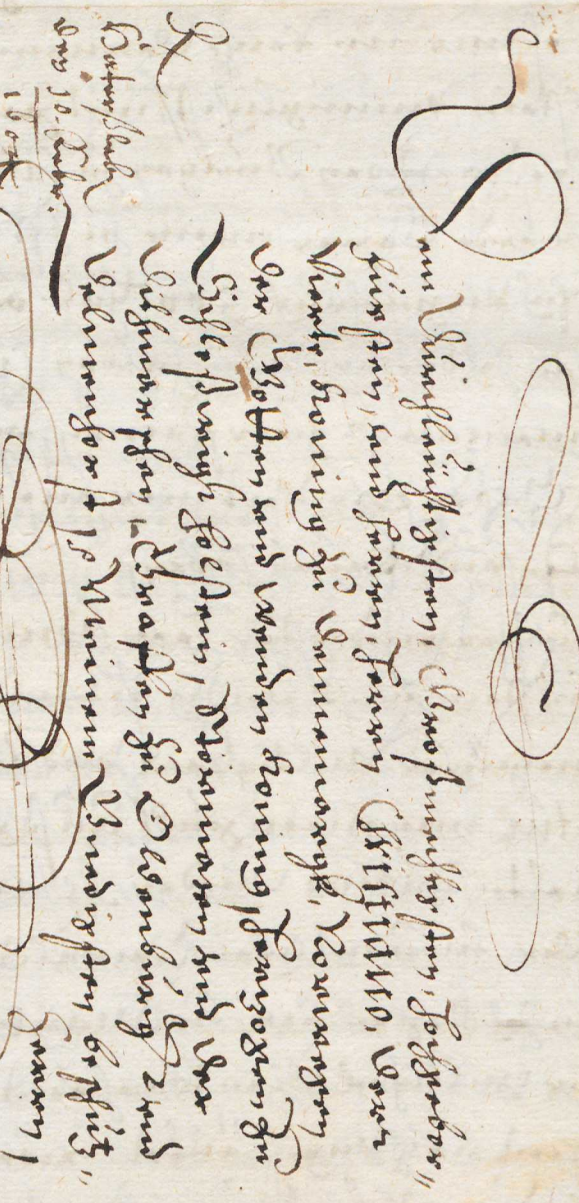 Dem Durchleuchtigsten, Großmechtigsten, Hochgebor„
Fürsten, und Herrn, Herrn Christiano, dem
Vierte Koning zu Dennemarck, Norwegen
der Gotten und Wenden, Koning, Hertzogen zu
Schleßwigh Holstein, Stormarn, und der
Dithmarschen, Graffen zu Oldenburg und
Delmenhorst, Meinem Gnedigsten
Herrn
den 30